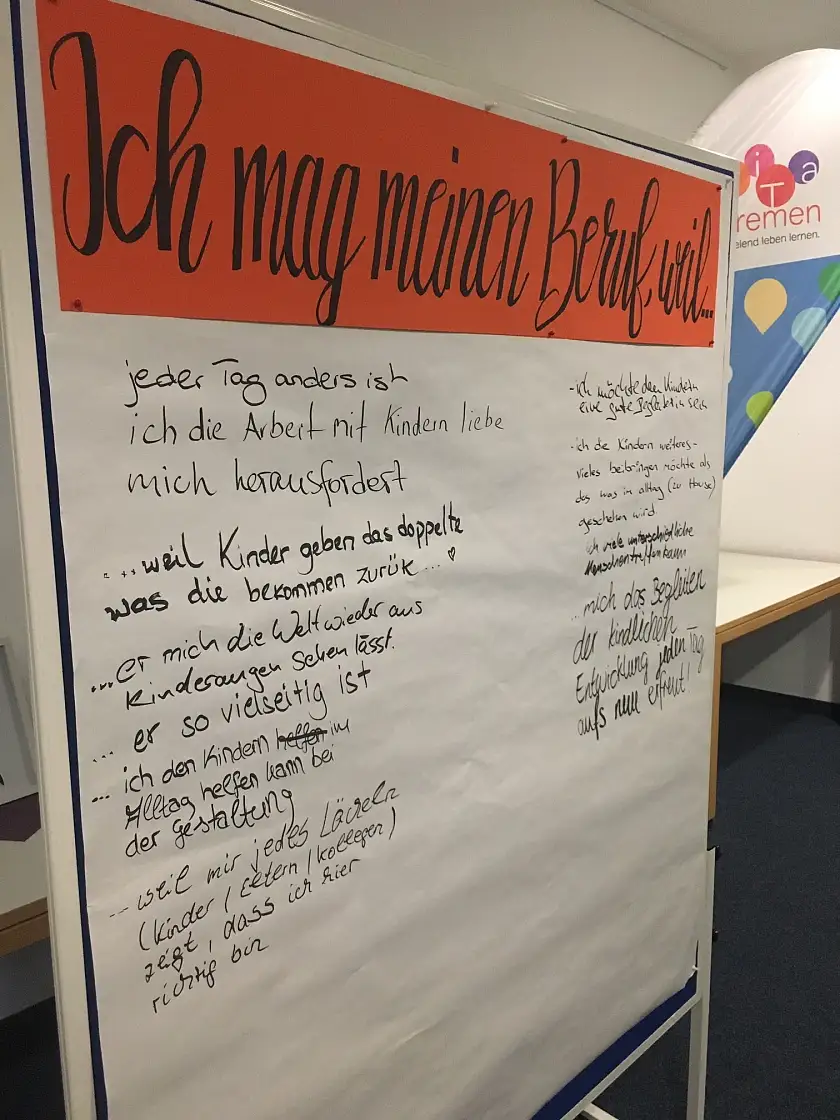 Ich mag meinen Beruf, weil...
jeder Tag anders ist
ich die Arbeit mit Kindern liebe
mich herausfordert
... weil Kinder geben das doppelte
was die bekommen zurük ... ♡
... er mich die Welt wieder aus
Kinderaugen sehen lässt.
... er so vielseitig ist
... ich den Kindern helfen im
Alltag helfen kann bei
der gestaltung
... weil mir jedes Lächeln
(kinder / Eltern / kollegen)
zeigt, dass ich hier
richtig bin
- ich möchte den Kindern
eine gute Begleiterin sein
- ich die Kindern weiteres -
vieles beibringen möchte als
das was in alltag (zu Hause)
geschehen wird.
ich viele unterschiedliche
Menschen treffen kann
... mich das Begleiten
der kindlichen
Entwicklung jeden Tag
aufs neue erfreut!
iTa
remen
elend leben lernen.